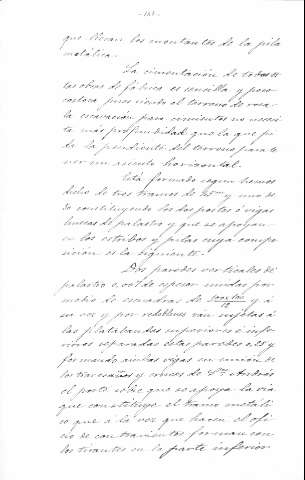 que llevan los montantes de la pila
metálica.
La cimentación de todas es
tas obras de fábrica es sencilla y poco
costosa pues siendo el terreno de roca
la escavación para cimientos no necesi
ta más profundidad que la que pi
da la pendiente del terreno para te
ner un asiento horizontal.
Está formado según hemos
dicho de tres tramos de y uno de
do constituyendo los dos postes ó vigas
huecas de palastro y que se apoyan
en los estribos y pilas cuya compo
sición es la siguiente.
Dos paredes verticales de
palastro de espesor unidas por
medio de escuadras de y á
su vez y por roblones van sujetas á
las platabandas superiores é infe
riores separadas estas paredes y
formando ambas vigas en unión de
los travesaños y cruces de Sn. Andrés
el poste sobre que se apoya la vía
que constituye el tramo metáli
co que á la vez que hacen el ofi
cio de con traviestas forman con
los tirantes en la parte inferior